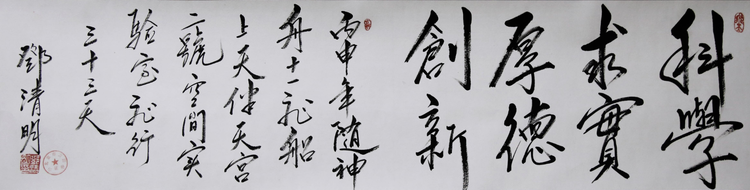 科學
求實
厚德
創新
丙申年随神
舟十一飛船
上天伴天宮
二號空間实
验室飛行
三十三天
鄧清明